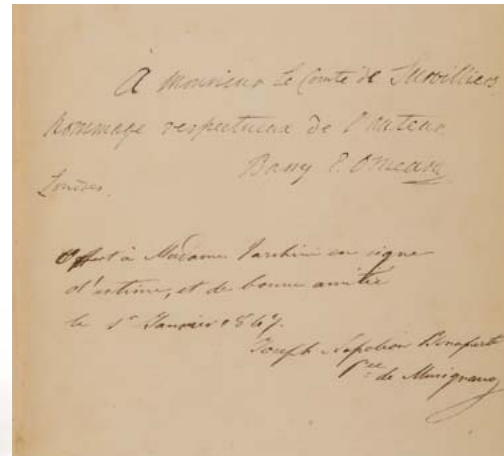 A Monsieur Le Comte de Survilliers
hommage respectueux de l'auteur
Barry E. OMeara
Londres.
Offert à Madame en signe
d'estime, et de bonne amitié
le 1er Janvier 1867.
Joseph Napoléon Bonaparte
Pce de Musignano